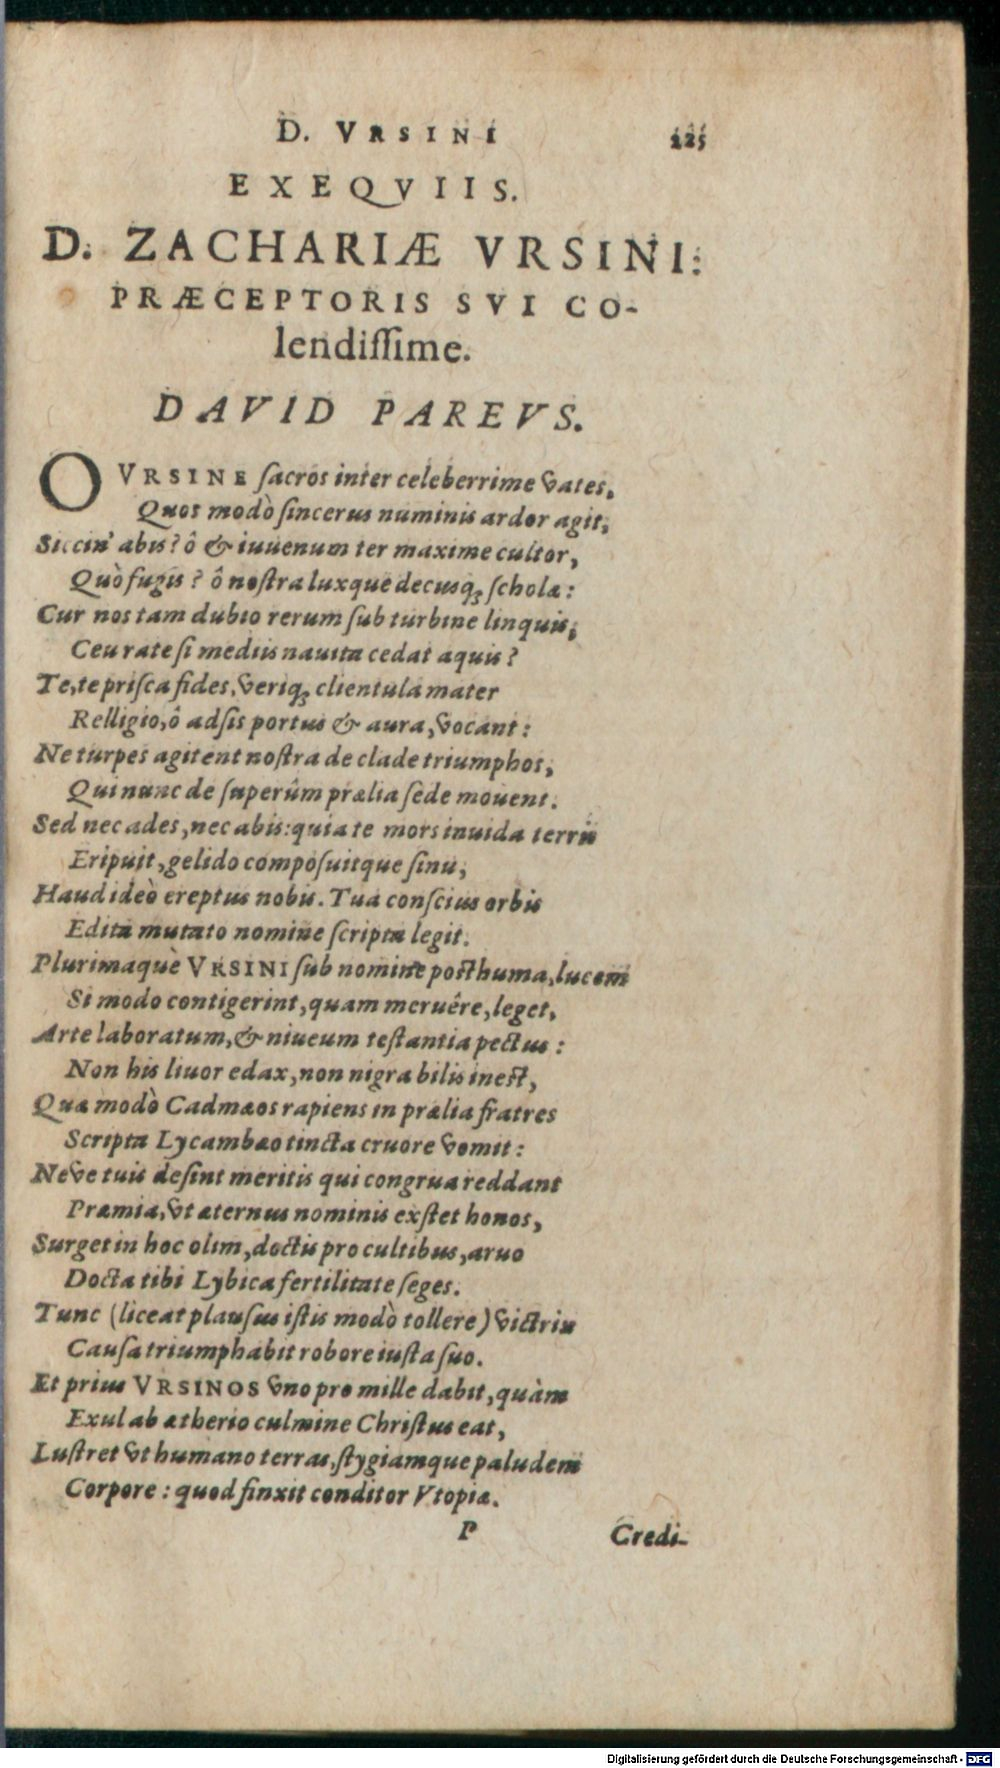 D. VRSINI 225
EXEQVIIS.
D. ZACHARIÆ VRSINI:
PRÆCEPTORIS SVI CO-
lendiſſime.
DAVID PAREVS.
O VRSINE ſacros inter celeberrime vates,
Quos modò ſincerus numinis ardor agit,
Siccin' abis? ô & iuuenum ter maxime cultor,
Quò fugis? ô noſtra luxque decusq́; ſcholæ:
Cur nos tam dubio rerum ſub turbine linquis;
Ceu rate ſi mediis nauita cedat aquis?
Te, te priſca fides, veriq́; clientula mater
Relligio, ô adſis portus & aura, vocant:
Ne turpes agitent noſtra de clade triumphos,
Qui nunc de ſuperûm prælia ſede mouent.
Sed nec ades, nec abis: quia te mors inuida terris
Eripuit, gelido compoſuitque ſinu,
Haud ideò ereptus nobis. Tua conſcius orbis
Edita mutato nomine ſcripta legit.
Plurimaquè VRSINI ſub nomine poſthuma, lucem
Si modo contigerint, quam meruêre, leget,
Arte laboratum, & niueum teſtantia pectus:
Non his liuor edax, non nigra bilis ineſt,
Quæ modò Cadmæos rapiens in prælia fratres
Scripta Lycambæo tincta cruore vomit:
Neve tuis deſint meritis qui congrua reddant
Præmia, vt æternus nominis exſtet honos,
Surget in hoc olim, doctis pro cultibus, aruo
Docta tibi Lybica fertilitate ſeges.
Tunc (liceat plauſus iſtis modò tollere) victrix
Cauſa triumphabit robore iuſta ſuo.
Et prius VRSINOS vno pro mille dabit, quàm
Exul ab ætherio culmine Chriſtus eat,
Luſtret vt humano terras, ſtygiamque paludem
Corpore: quod finxit conditor Vtopiæ.
P Credi-
Digitalisierung gefördert durch die Deutsche Forschungsgemeinschaft - DFG